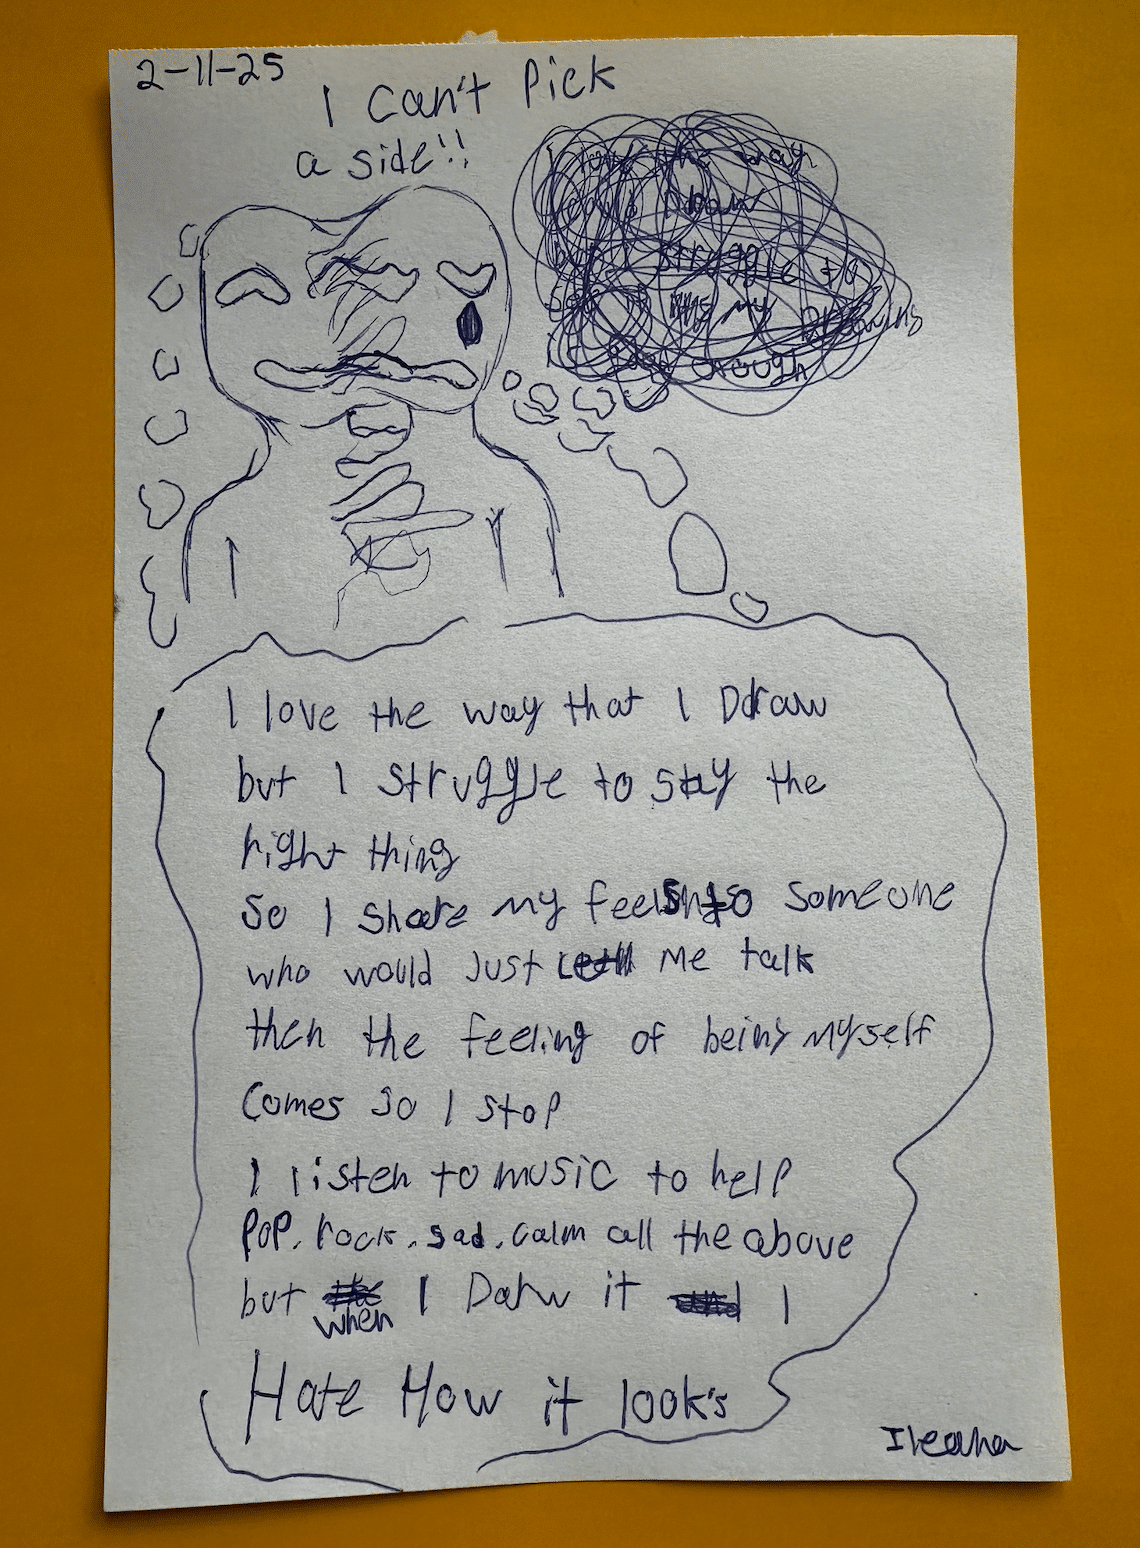 2-11-25
I Can't Pick
a side!!
I love the way
Draw
but I struggle to
my Drawings
enough
I love the way that I Ddraw
but I struggle to stay the
right thing
So I Share my feel to someone
who would Just me talk
then the feeling of being myself
Comes So I stop
I listen to music to help
POP. rock. sad. calm all the above
but when I Darw it I
Hate How it look's
Ileana